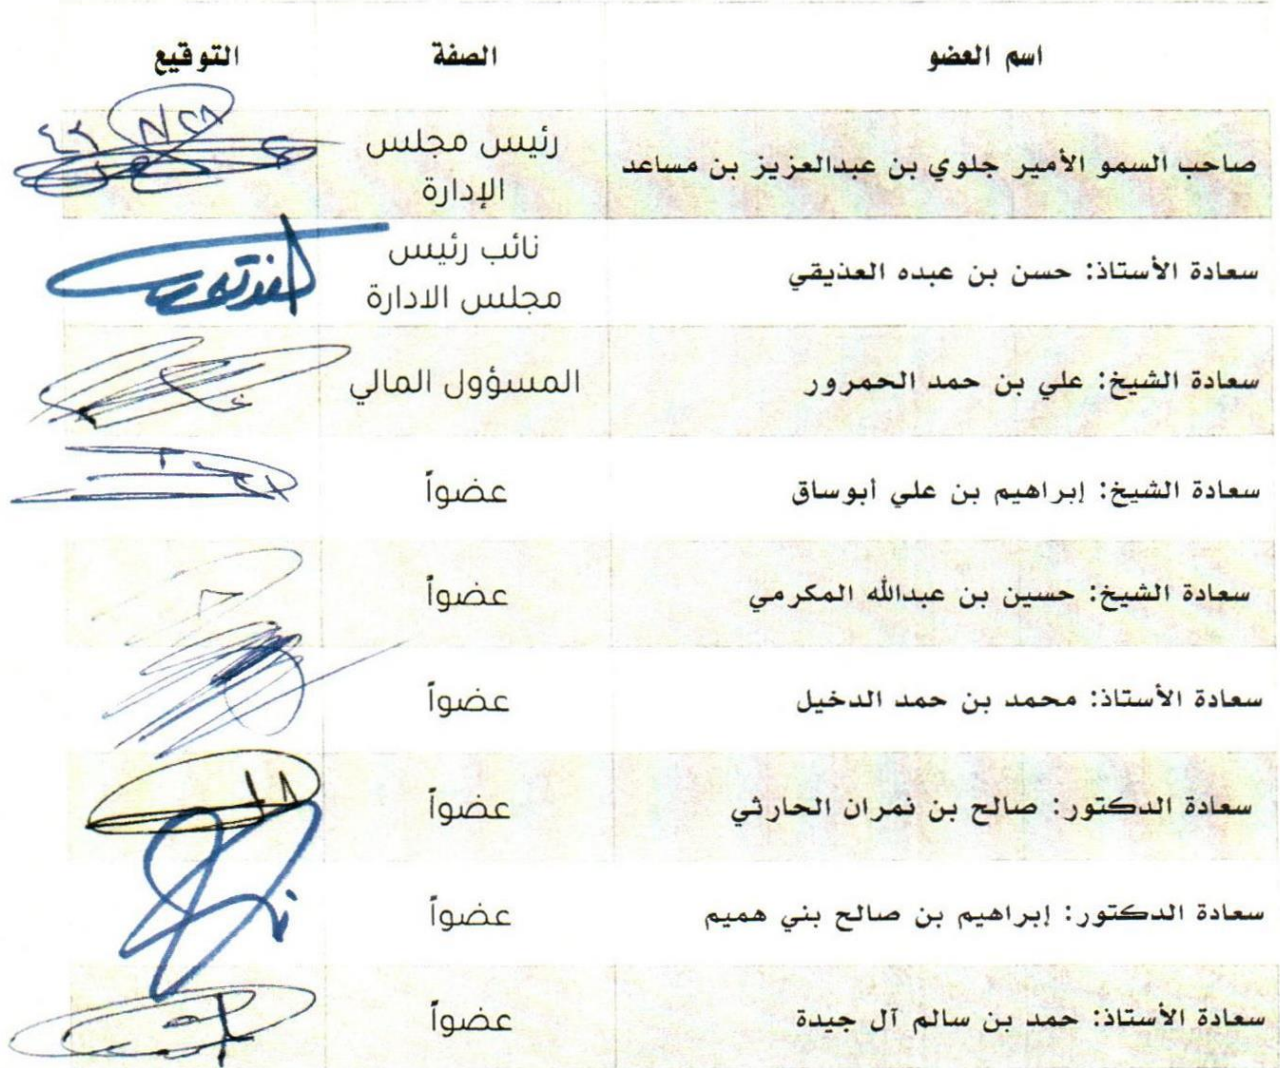 اسم العضو الصفة التوقيع
صاحب السمو الأمير جلوي بن عبدالعزيز بن مساعد رئيس مجلس
الإدارة
٢٨/٨
٤٢
سعادة الأستاذ: حسن بن عبده العذيقي نائب رئيس
مجلس الادارة
سعادة الشيخ: علي بن حمد الحمرور المسؤول المالي
سعادة الشيخ: إبراهيم بن علي أبوساق عضواً
سعادة الشيخ: حسين بن عبدالله المكرمي عضواً
سعادة الأستاذ: محمد بن حمد الدخيل عضواً
سعادة الدكتور: صالح بن نمران الحارثي عضواً
سعادة الدكتور: إبراهيم بن صالح بني هميم عضواً
سعادة الأستاذ: حمد بن سالم آل جيدة عضواً